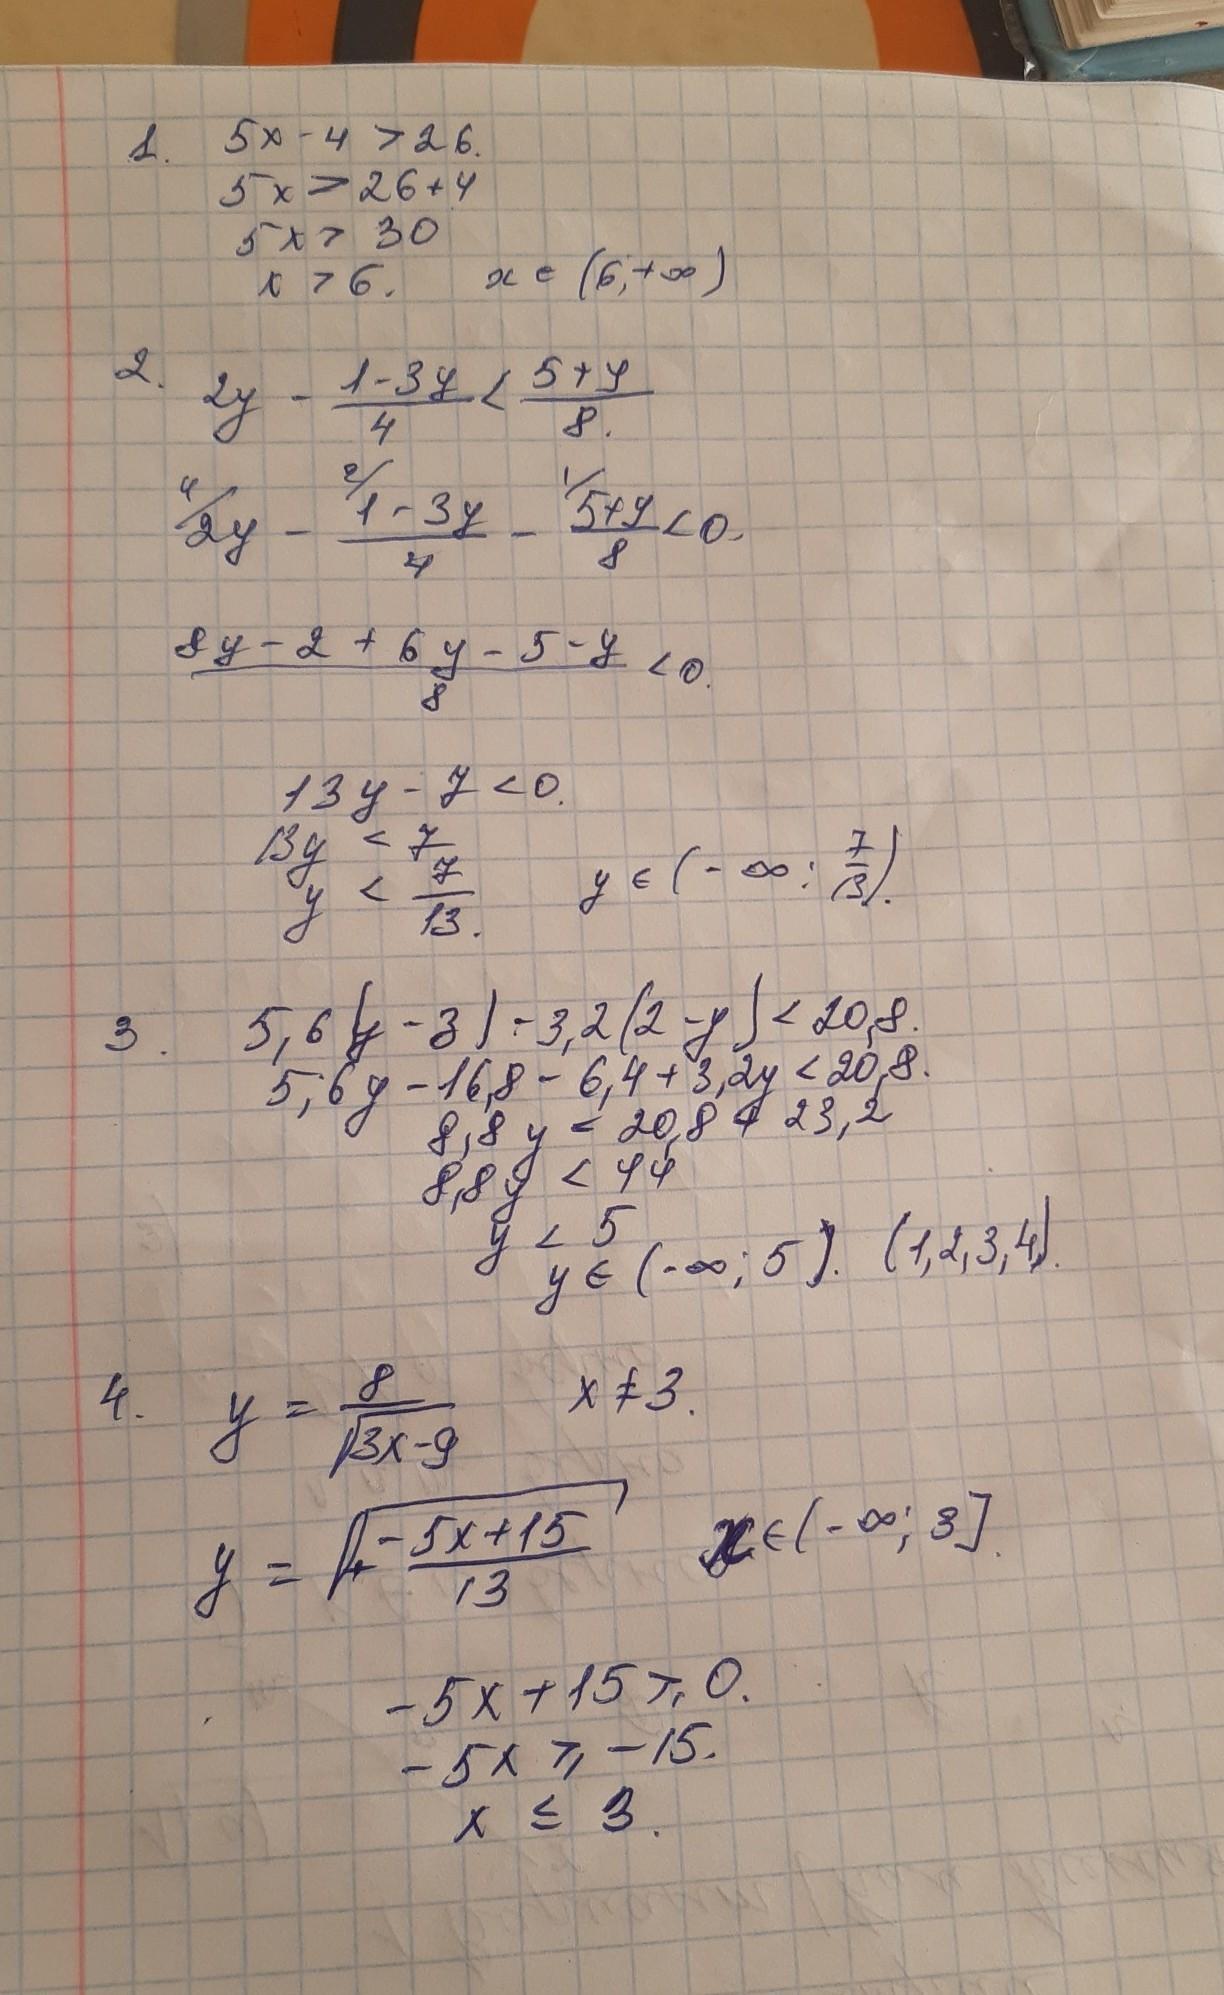 1. 5x - 4 > 26.
5x > 26 + 4
5x > 30
x > 6. x ∈ (6; +∞)
2. 2y - (1-3y)/4 < (5+y)/8.
4/ 2y - 2/ (1-3y)/4 - 1/ (5+y)/8 < 0.
(8y - 2 + 6y - 5 - y)/8 < 0.
13y - 7 < 0.
13y < 7
y < 7/13. y ∈ (-∞; 7/13).
3. 5,6(y - 3) - 3,2(2 - y) < 20,8.
5,6y - 16,8 - 6,4 + 3,2y < 20,8.
8,8y < 20,8 + 23,2
8,8y < 44
y < 5
y ∈ (-∞; 5). (1,2,3,4).
4. y = 8/√(3x-9) x ≠ 3.
y = √((-5x+15)/13) x ∈ (-∞; 3].
-5x + 15 ≥ 0.
-5x ≥ -15.
x ≤ 3.